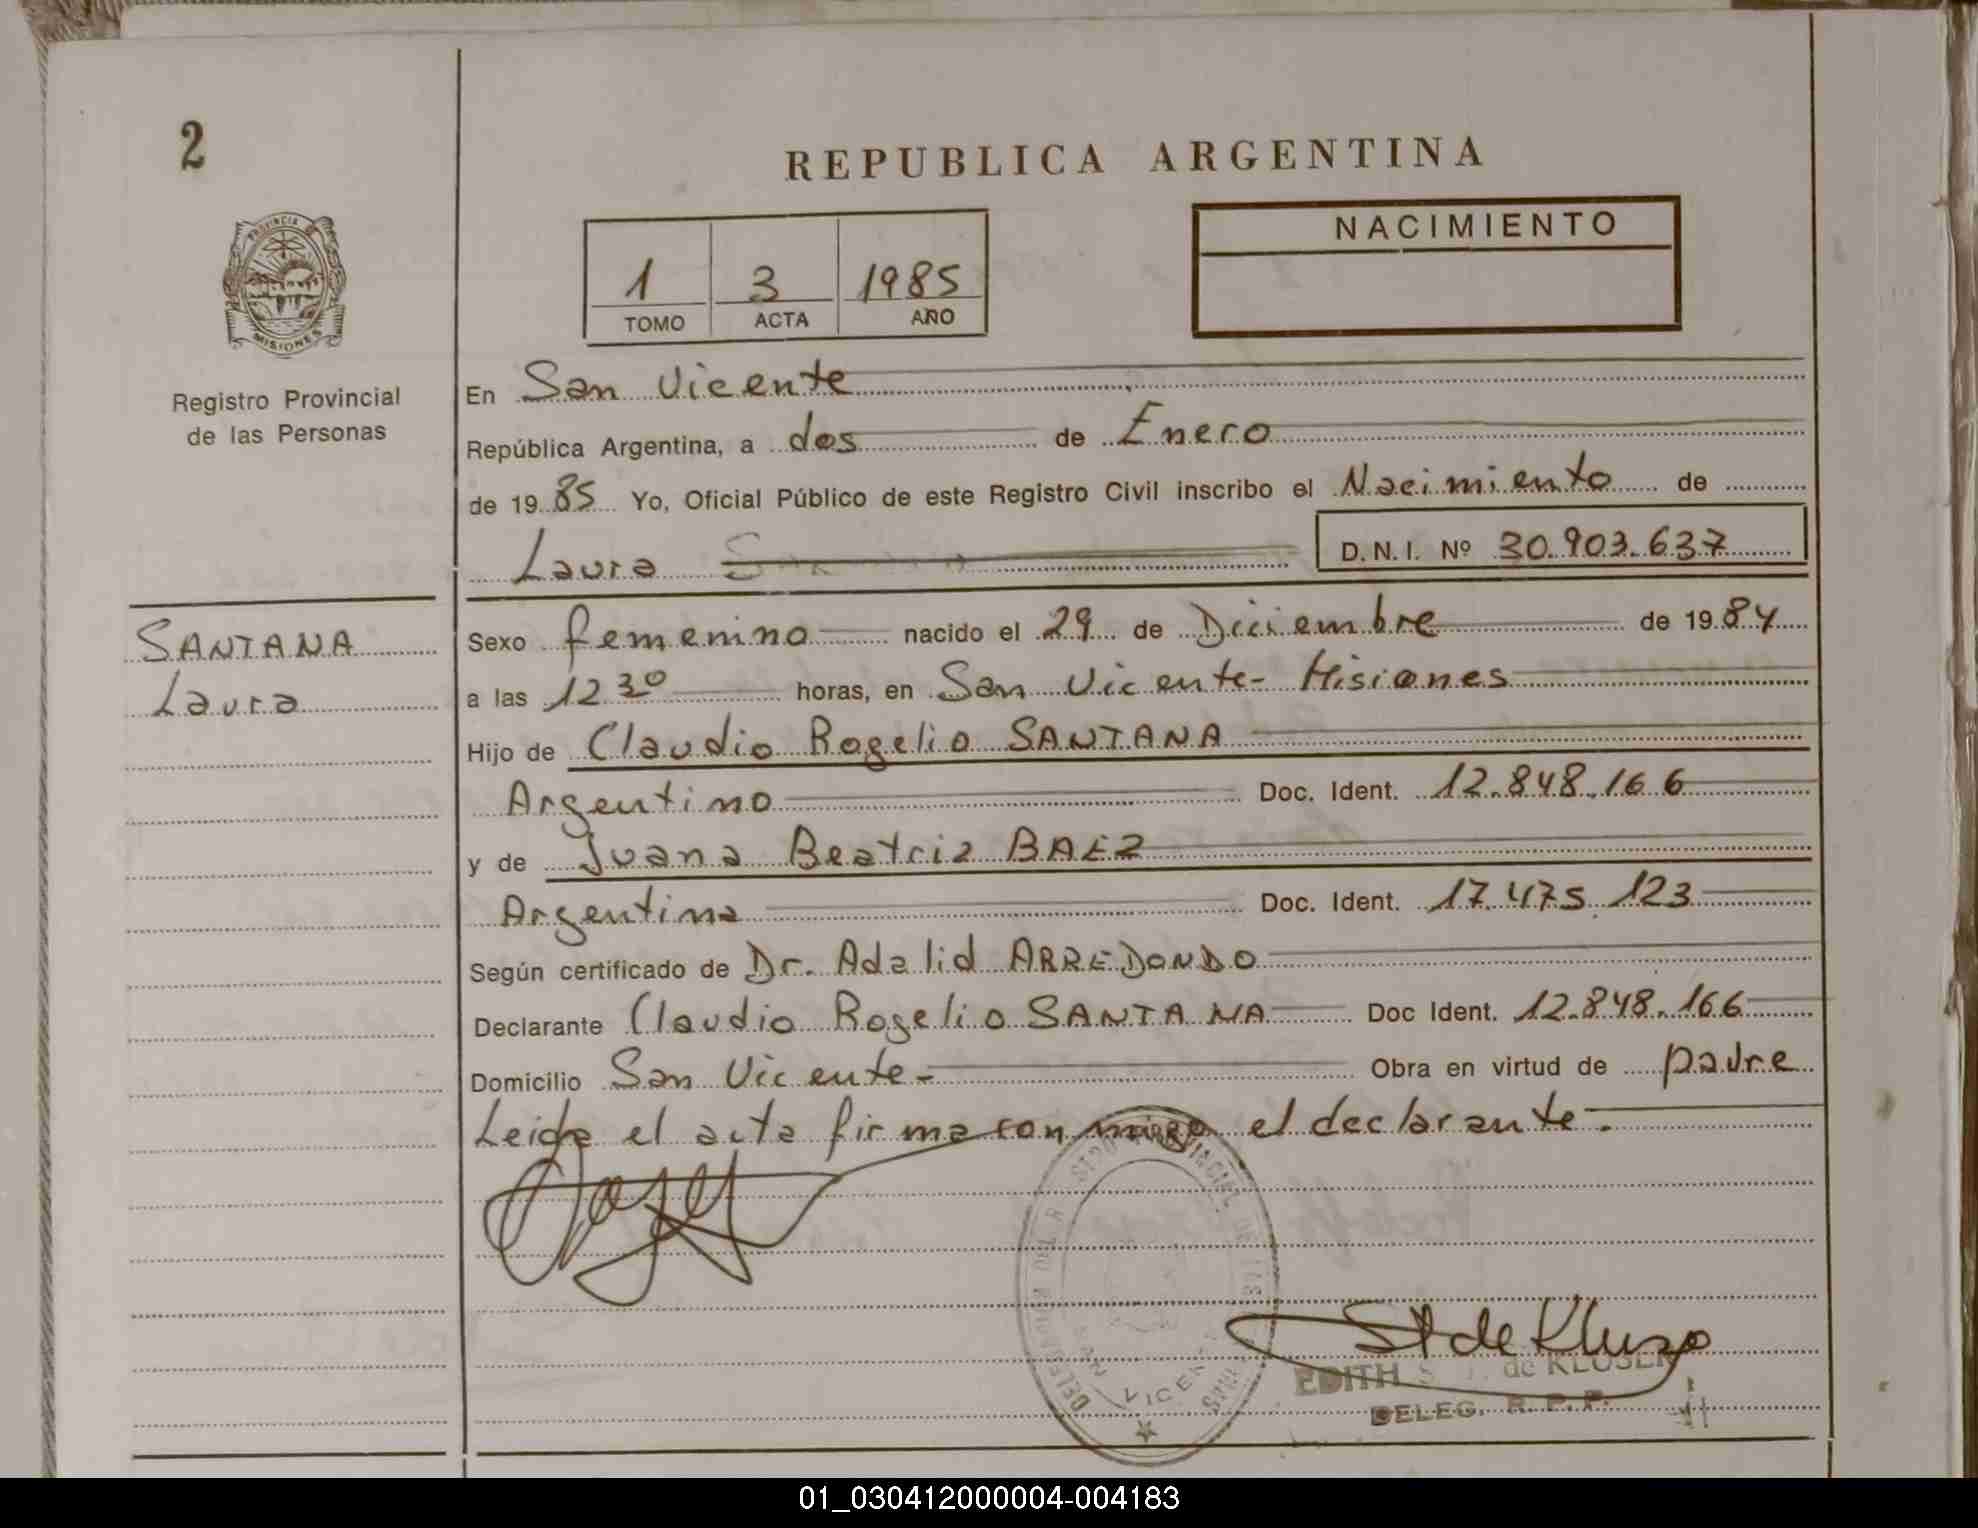 2
REPUBLICA ARGENTINA
PROVINCIA DE
MISIONES
Registro Provincial
de las Personas
1 3 1985
TOMO ACTA AÑO
NACIMIENTO
En San Vicente
República Argentina, a dos de Enero
de 1985 Yo, Oficial Público de este Registro Civil inscribo el Nacimiento de
Laura
D. N. I. Nº 30.903.637
SANTANA
Laura
Sexo femenino nacido el 29 de Diciembre de 1984
a las 12 30 horas, en San Vicente - Misiones
Hijo de Claudio Rogelio SANTANA
Argentino Doc. Ident. 12.848.166
y de Juana Beatriz BAEZ
Argentina Doc. Ident. 17.475.123
Según certificado de Dr. Adalid ARREDONDO
Declarante Claudio Rogelio SANTANA Doc Ident. 12.848.166
Domicilio San Vicente - Obra en virtud de padre
Leida el acta firma con migo el declarante.
VICEN
EDITH de KLUSER
DELEG. R. P. P.
01_030412000004-004183